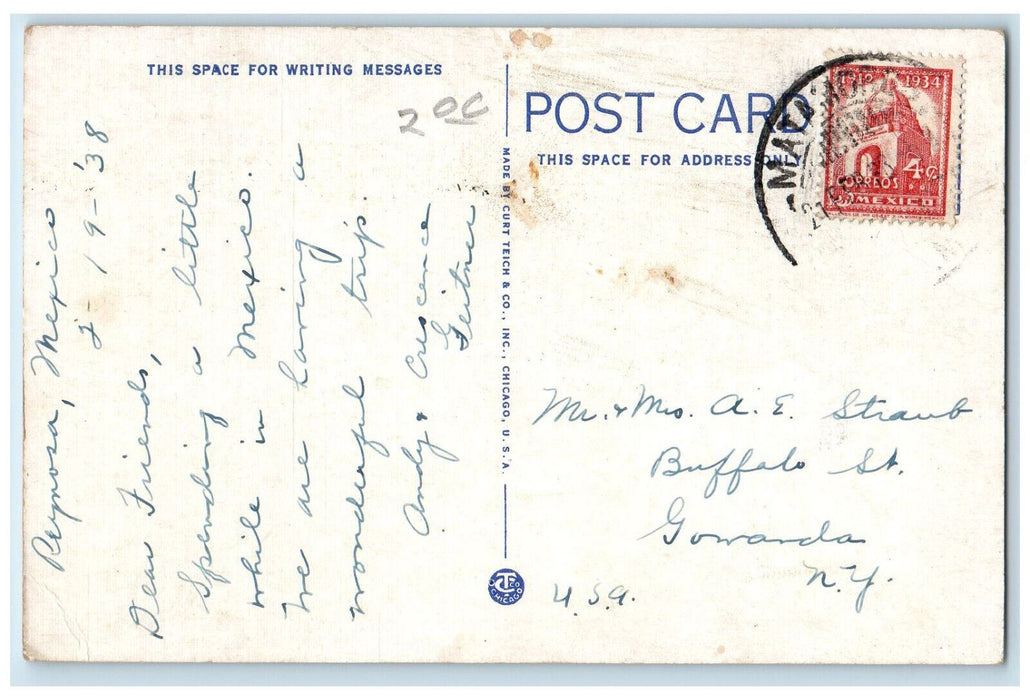 THIS SPACE FOR WRITING MESSAGES
2 00
Reynosa, Mexico
2-19-'38
Dear Friends,
Spending a little
while in Mexico.
We are having a
wonderful trip.
Andy & Crescence
Geitner
MADE BY CURT TEICH & CO., INC., CHICAGO, U.S.A.
CT CO CHICAGO
POST CARD
THIS SPACE FOR ADDRESS ONLY
1712 1934
4¢
CORREOS
MEXICO
MATAMOROS
Mr. & Mrs. A. E. Straub
Buffalo St.
Gowanda
N.Y.
U.S.A.